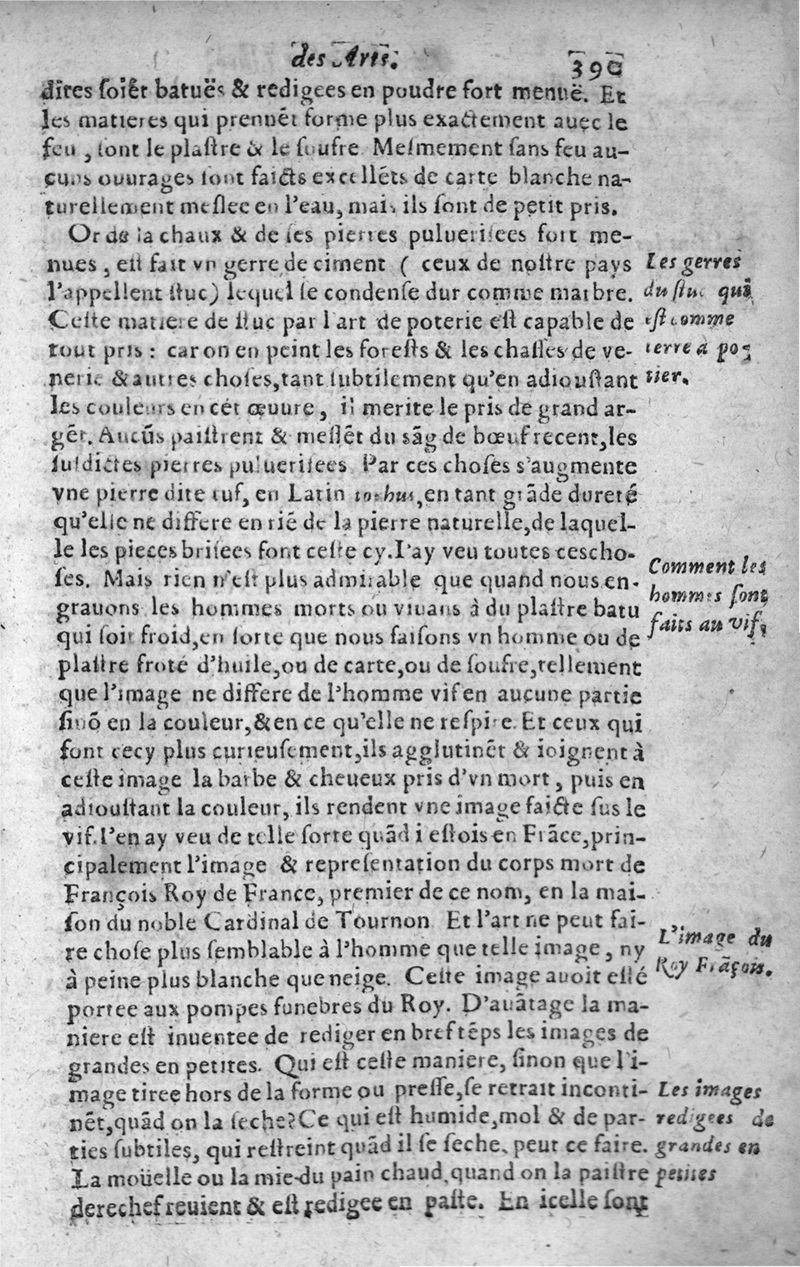 des Arts.
390
dites soiẽt batuës & redigees en poudre fort menuë. Et
les matieres qui prennẽt forme plus exactement auec le
feu, sont le plaſtre & le ſoufre. Meſmement ſans feu au-
cuns ouurages ſont faicts excellẽts de carte blanche na-
turellement meſlee en l'eau, mais ils ſont de petit pris.
Or de la chaux & de ſes pierres puluerisees fort me-
nues, eſt fait vn gerre de ciment ( ceux de noſtre pays
l'appellent ſtuc) lequel ſe condenſe dur comme marbre.
Ceſte matiere de ſtuc par l'art de poterie eſt capable de
tout pris : car on en peint les foreſts & les chaſſes de ve-
nerie & autres choſes, tant ſubtilement qu'en adiouſtant
les couleurs en cét œuure, il merite le pris de grand ar-
gẽt. Aucũs paiſtrent & meſlẽt du sãg de bœuf recent, les
ſuſdictes pierres puluerisees. Par ces choſes s'augmente
vne pierre dite tuf, en Latin tophus, en tant grãde dureté
qu'elle ne differe en riẽ de la pierre naturelle, de laquel-
le les pieces briſees font ceſte cy. I'ay veu toutes ces cho-
ſes. Mais rien n'eſt plus admirable que quand nous en-
grauons les hommes morts ou viuans à du plaſtre batu
qui ſoit froid, en ſorte que nous faiſons vn homme ou de
plaſtre froté d'huile, ou de carte, ou de ſoufre, tellement
que l'image ne differe de l'homme vif en aucune partie
ſinõ en la couleur, & en ce qu'elle ne reſpire. Et ceux qui
font cecy plus curieuſement, ils agglutinẽt & ioignent à
ceſte image la barbe & cheueux pris d'vn mort, puis en
adiouſtant la couleur, ils rendent vne image faicte ſus le
vif. I'en ay veu de telle ſorte quãd i'eſtois en Frãce, prin-
cipalement l'image & repreſentation du corps mort de
François Roy de France, premier de ce nom, en la mai-
ſon du noble Cardinal de Tournon. Et l'art ne peut fai-
re choſe plus ſemblable à l'homme que telle image, ny
à peine plus blanche que neige. Ceſte image auoit eſté
portee aux pompes funebres du Roy. D'auãtage la ma-
niere eſt inuentee de rediger en bref tẽps les images de
grandes en petites. Qui eſt ceſte maniere, ſinon que l'i-
mage tiree hors de la forme ou preſſe, ſe retrait inconti-
nẽt, quãd on la ſeche? Ce qui eſt humide, mol & de par-
ties ſubtiles, qui reſtreint quãd il ſe ſeche, peut ce faire.
La moüelle ou la mie du pain chaud, quand on la paiſtre
derechef reuient & eſt redigee en paſte. En icelle ſont
Les gerres
du ſtuc qui
eſt comme
terre à po-
tier.
Comment les
hommes ſont
faits au vif.
L'image du
Roy Frãçois.
Les images
redigees de
grandes en
petites